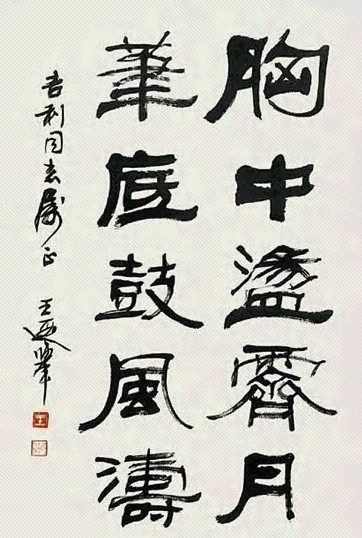 胸中盪霽月
筆底鼓風濤
吉利同志属正 王遐舉
王